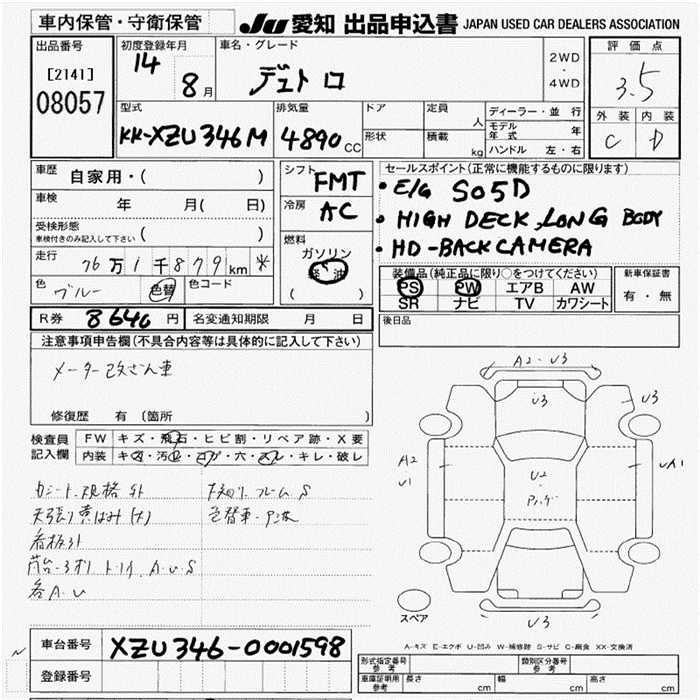 車内保管・守衛保管
JU 愛知 出品申込書 JAPAN USED CAR DEALERS ASSOCIATION
出品番号
[2141]
08057
初度登録年月
14
8月
車名・グレード
デュトロ
2WD
・
4WD
評価点
3.5
外装 内装
C D
型式
KK-XZU346M
排気量
4890cc
ドア
形状
定員 人
積載 kg
ディーラー・並行
モデル年式 年
ハンドル 左・右
車歴 自家用・( )
車検 年 月( 日)
受検形態
車検付きのみ記入して下さい ( )
走行 76万1千879km *
色 ブルー 色替 色コード
シフト FMT
冷房 AC
燃料
ガソリン
軽油
( )
セールスポイント(正常に機能するものに限ります)
・E/G S05D
・HIGH DECK, LONG BODY
・HD-BACKCAMERA
装備品(純正品に限り○をつけてください)
PS PW エアB AW
SR ナビ TV カワシート
新車保証書
有・無
R券 8640円 名変通知期限 月 日
後日品
注意事項申告欄(不具合内容等は具体的に記入して下さい)
メーター改ざん車
修復歴 有 (箇所 )
検査員記入欄
FW キズ・飛石・ヒビ割・リペア跡・X要
内装 キズ・汚レ・コゲ・穴・スレ・キレ・破レ
看板外
各A.U
A2・U3
U3
U3
A2
U1
U2
UA1
U3
スペア
A-キズ E-エクボ U-凹み W-補修跡 S-サビ C-腐食 XX-交換済
車台番号 XZU346-0001598
登録番号
型式指定番号 参考
類別区分番号 参考
車庫証明用 参考 長さ cm 幅 cm 高さ cm